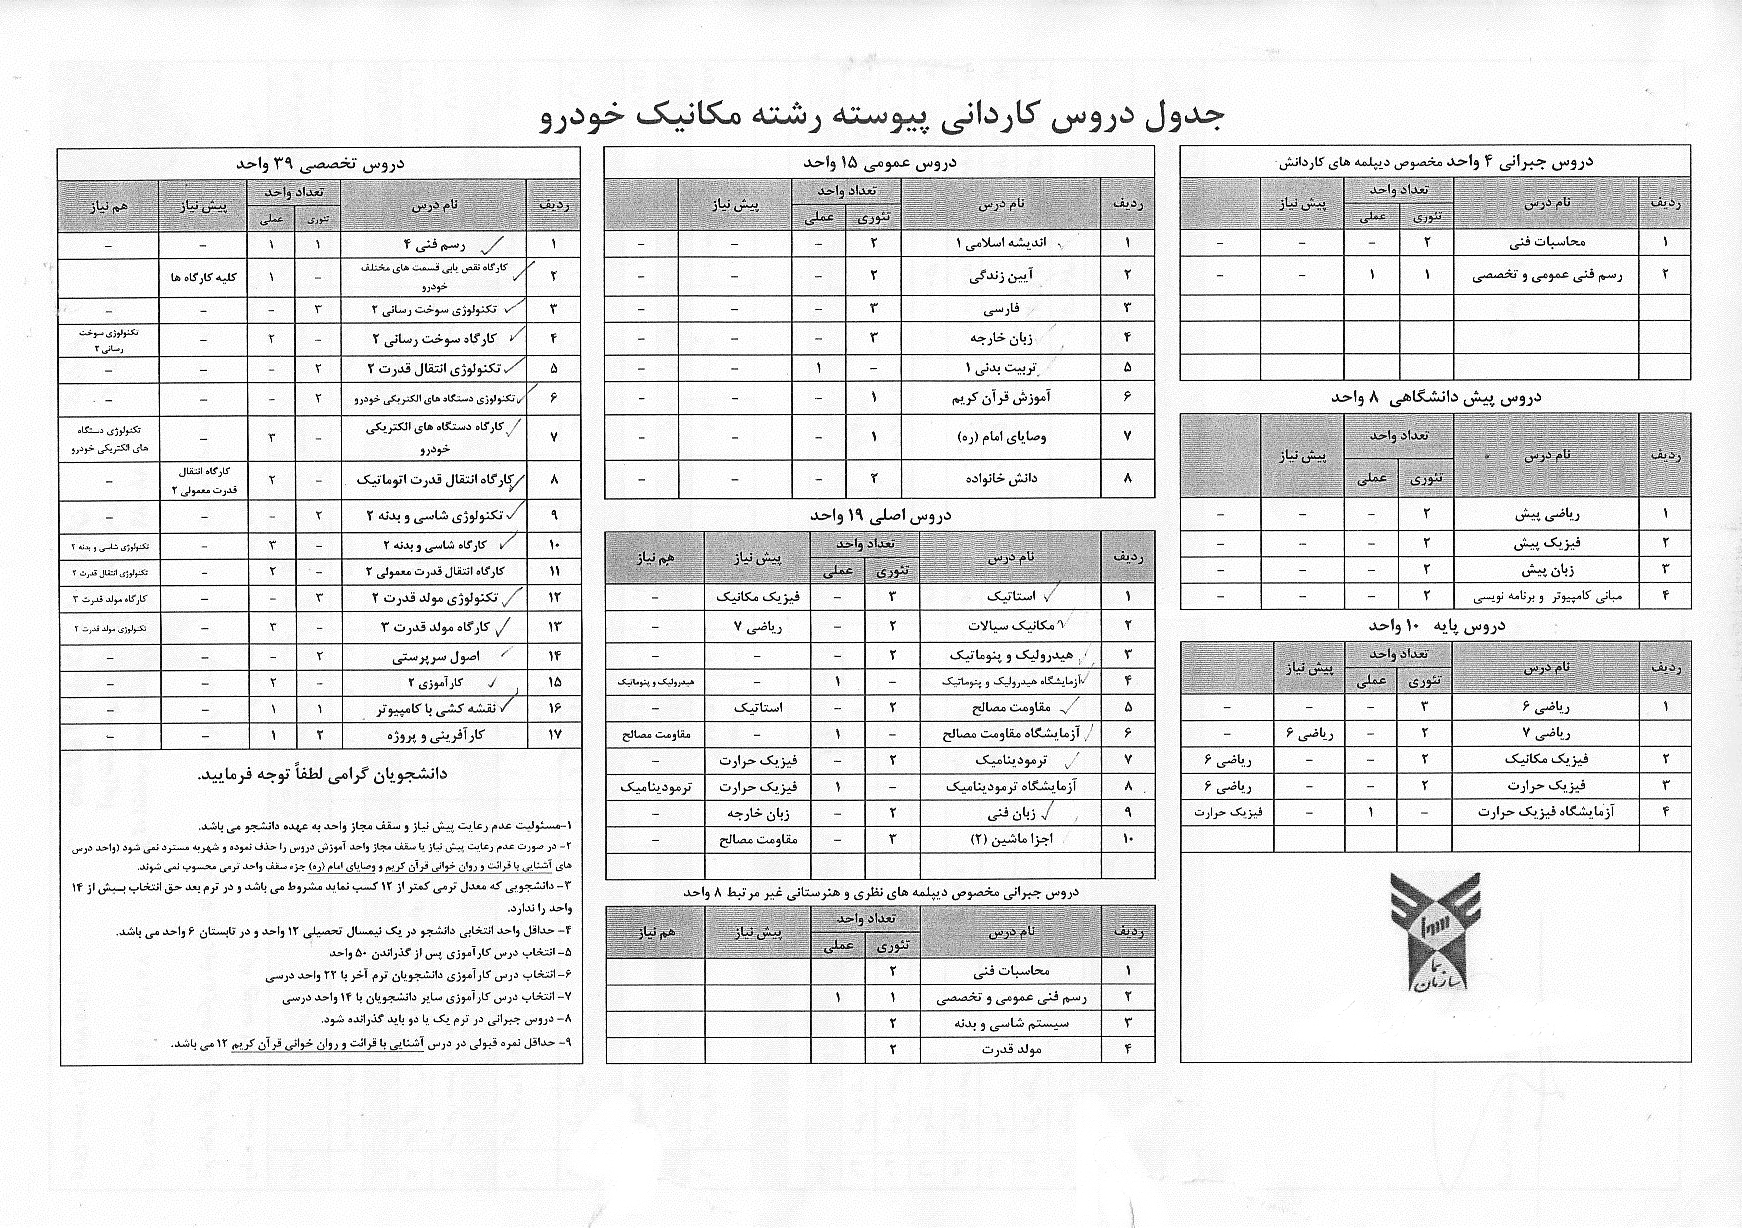 جدول دروس کاردانی پیوسته رشته مکانیک خودرو
دروس جبرانی ۴ واحد مخصوص دیپلمه های کاردانش
ردیف نام درس تعداد واحد پیش نیاز
تئوری عملی
۱ محاسبات فنی ۲ - - -
۲ رسم فنی عمومی و تخصصی ۱ ۱ - -
دروس پیش دانشگاهی ۸ واحد
ردیف نام درس تعداد واحد پیش نیاز
تئوری عملی
۱ ریاضی پیش ۲ - - -
۲ فیزیک پیش ۲ - - -
۳ زبان پیش ۲ - - -
۴ مبانی کامپیوتر و برنامه نویسی ۲ - - -
دروس پایه ۱۰ واحد
ردیف نام درس تعداد واحد پیش نیاز
تئوری عملی
۱ ریاضی ۶ ۳ - - -
ریاضی ۷ ۲ - ریاضی ۶ -
۲ فیزیک مکانیک ۲ - - ریاضی ۶
۳ فیزیک حرارت ۲ - - ریاضی ۶
۴ آزمایشگاه فیزیک حرارت - ۱ - فیزیک حرارت
سما
سازمان
دروس عمومی ۱۵ واحد
ردیف نام درس تعداد واحد پیش نیاز
تئوری عملی
۱ اندیشه اسلامی ۱ ۲ - - -
۲ آیین زندگی ۲ - - -
۳ فارسی ۳ - - -
۴ زبان خارجه ۳ - - -
۵ تربیت بدنی ۱ - ۱ - -
۶ آموزش قرآن کریم ۱ - - -
۷ وصایای امام (ره) ۱ - - -
۸ دانش خانواده ۲ - - -
دروس اصلی ۱۹ واحد
ردیف نام درس تعداد واحد پیش نیاز هم نیاز
تئوری عملی
۱ استاتیک ۳ - فیزیک مکانیک -
۲ مکانیک سیالات ۲ - ریاضی ۷ -
۳ هیدرولیک و پنوماتیک ۲ - - -
۴ آزمایشگاه هیدرولیک و پنوماتیک - ۱ - هیدرولیک و پنوماتیک
۵ مقاومت مصالح ۲ - استاتیک -
۶ آزمایشگاه مقاومت مصالح - ۱ - مقاومت مصالح
۷ ترمودینامیک ۲ - فیزیک حرارت -
۸ آزمایشگاه ترمودینامیک - ۱ فیزیک حرارت ترمودینامیک
۹ زبان فنی ۲ - زبان خارجه -
۱۰ اجزا ماشین (۲) ۳ - مقاومت مصالح -
دروس جبرانی مخصوص دیپلمه های نظری و هنرستانی غیر مرتبط ۸ واحد
ردیف نام درس تعداد واحد پیش نیاز هم نیاز
تئوری عملی
۱ محاسبات فنی ۲
۲ رسم فنی عمومی و تخصصی ۱ ۱
۳ سیستم شاسی و بدنه ۲
۴ مولد قدرت ۲
دروس تخصصی ۳۹ واحد
ردیف نام درس تعداد واحد پیش نیاز هم نیاز
تئوری عملی
۱ رسم فنی ۴ ۱ ۱ - -
۲ کارگاه نقص یابی قسمت های مختلف خودرو - ۱ کلیه کارگاه ها
۳ تکنولوژی سوخت رسانی ۲ ۳ - - -
۴ کارگاه سوخت رسانی ۲ - ۲ - تکنولوژی سوخت رسانی ۲
۵ تکنولوژی انتقال قدرت ۲ ۲ - - -
۶ تکنولوژی دستگاه های الکتریکی خودرو ۲ - - -
۷ کارگاه دستگاه های الکتریکی خودرو - ۳ - تکنولوژی دستگاه های الکتریکی خودرو
۸ کارگاه انتقال قدرت اتوماتیک - ۲ کارگاه انتقال قدرت معمولی ۲ -
۹ تکنولوژی شاسی و بدنه ۲ ۲ - - -
۱۰ کارگاه شاسی و بدنه ۲ - ۳ - تکنولوژی شاسی و بدنه ۲
۱۱ کارگاه انتقال قدرت معمولی ۲ - ۲ - تکنولوژی انتقال قدرت ۲
۱۲ تکنولوژی مولد قدرت ۲ ۳ - - کارگاه مولد قدرت ۳
۱۳ کارگاه مولد قدرت ۳ - ۳ - تکنولوژی مولد قدرت ۲
۱۴ اصول سرپرستی ۲ - - -
۱۵ کارآموزی ۲ - ۲ - -
۱۶ نقشه کشی با کامپیوتر ۱ ۱ - -
۱۷ کارآفرینی و پروژه ۲ ۱ - -
دانشجویان گرامی لطفاً توجه فرمایید.
۱-مسئولیت عدم رعایت پیش نیاز و سقف مجاز واحد به عهده دانشجو می باشد.
۲- در صورت عدم رعایت پیش نیاز یا سقف مجاز واحد آموزش دروس را حذف نموده و شهریه مسترد نمی شود (واحد درس
های آشنایی با قرائت و روان خوانی قرآن کریم و وصایای امام (ره) جزء سقف واحد ترمی محسوب نمی شوند.
۳- دانشجویی که معدل ترمی کمتر از ۱۲ کسب نماید مشروط می باشد و در ترم بعد حق انتخاب بیش از ۱۴
واحد را ندارد.
۴- حداقل واحد انتخابی دانشجو در یک نیمسال تحصیلی ۱۲ واحد و در تابستان ۶ واحد می باشد.
۵- انتخاب درس کارآموزی پس از گذراندن ۵۰ واحد
۶- انتخاب درس کارآموزی دانشجویان ترم آخر با ۲۲ واحد درسی
۷- انتخاب درس کارآموزی سایر دانشجویان با ۱۴ واحد درسی
۸- دروس جبرانی در ترم یک یا دو باید گذرانده شود.
۹- حداقل نمره قبولی در درس آشنایی با قرائت و روان خوانی قرآن کریم ۱۲ می باشد.